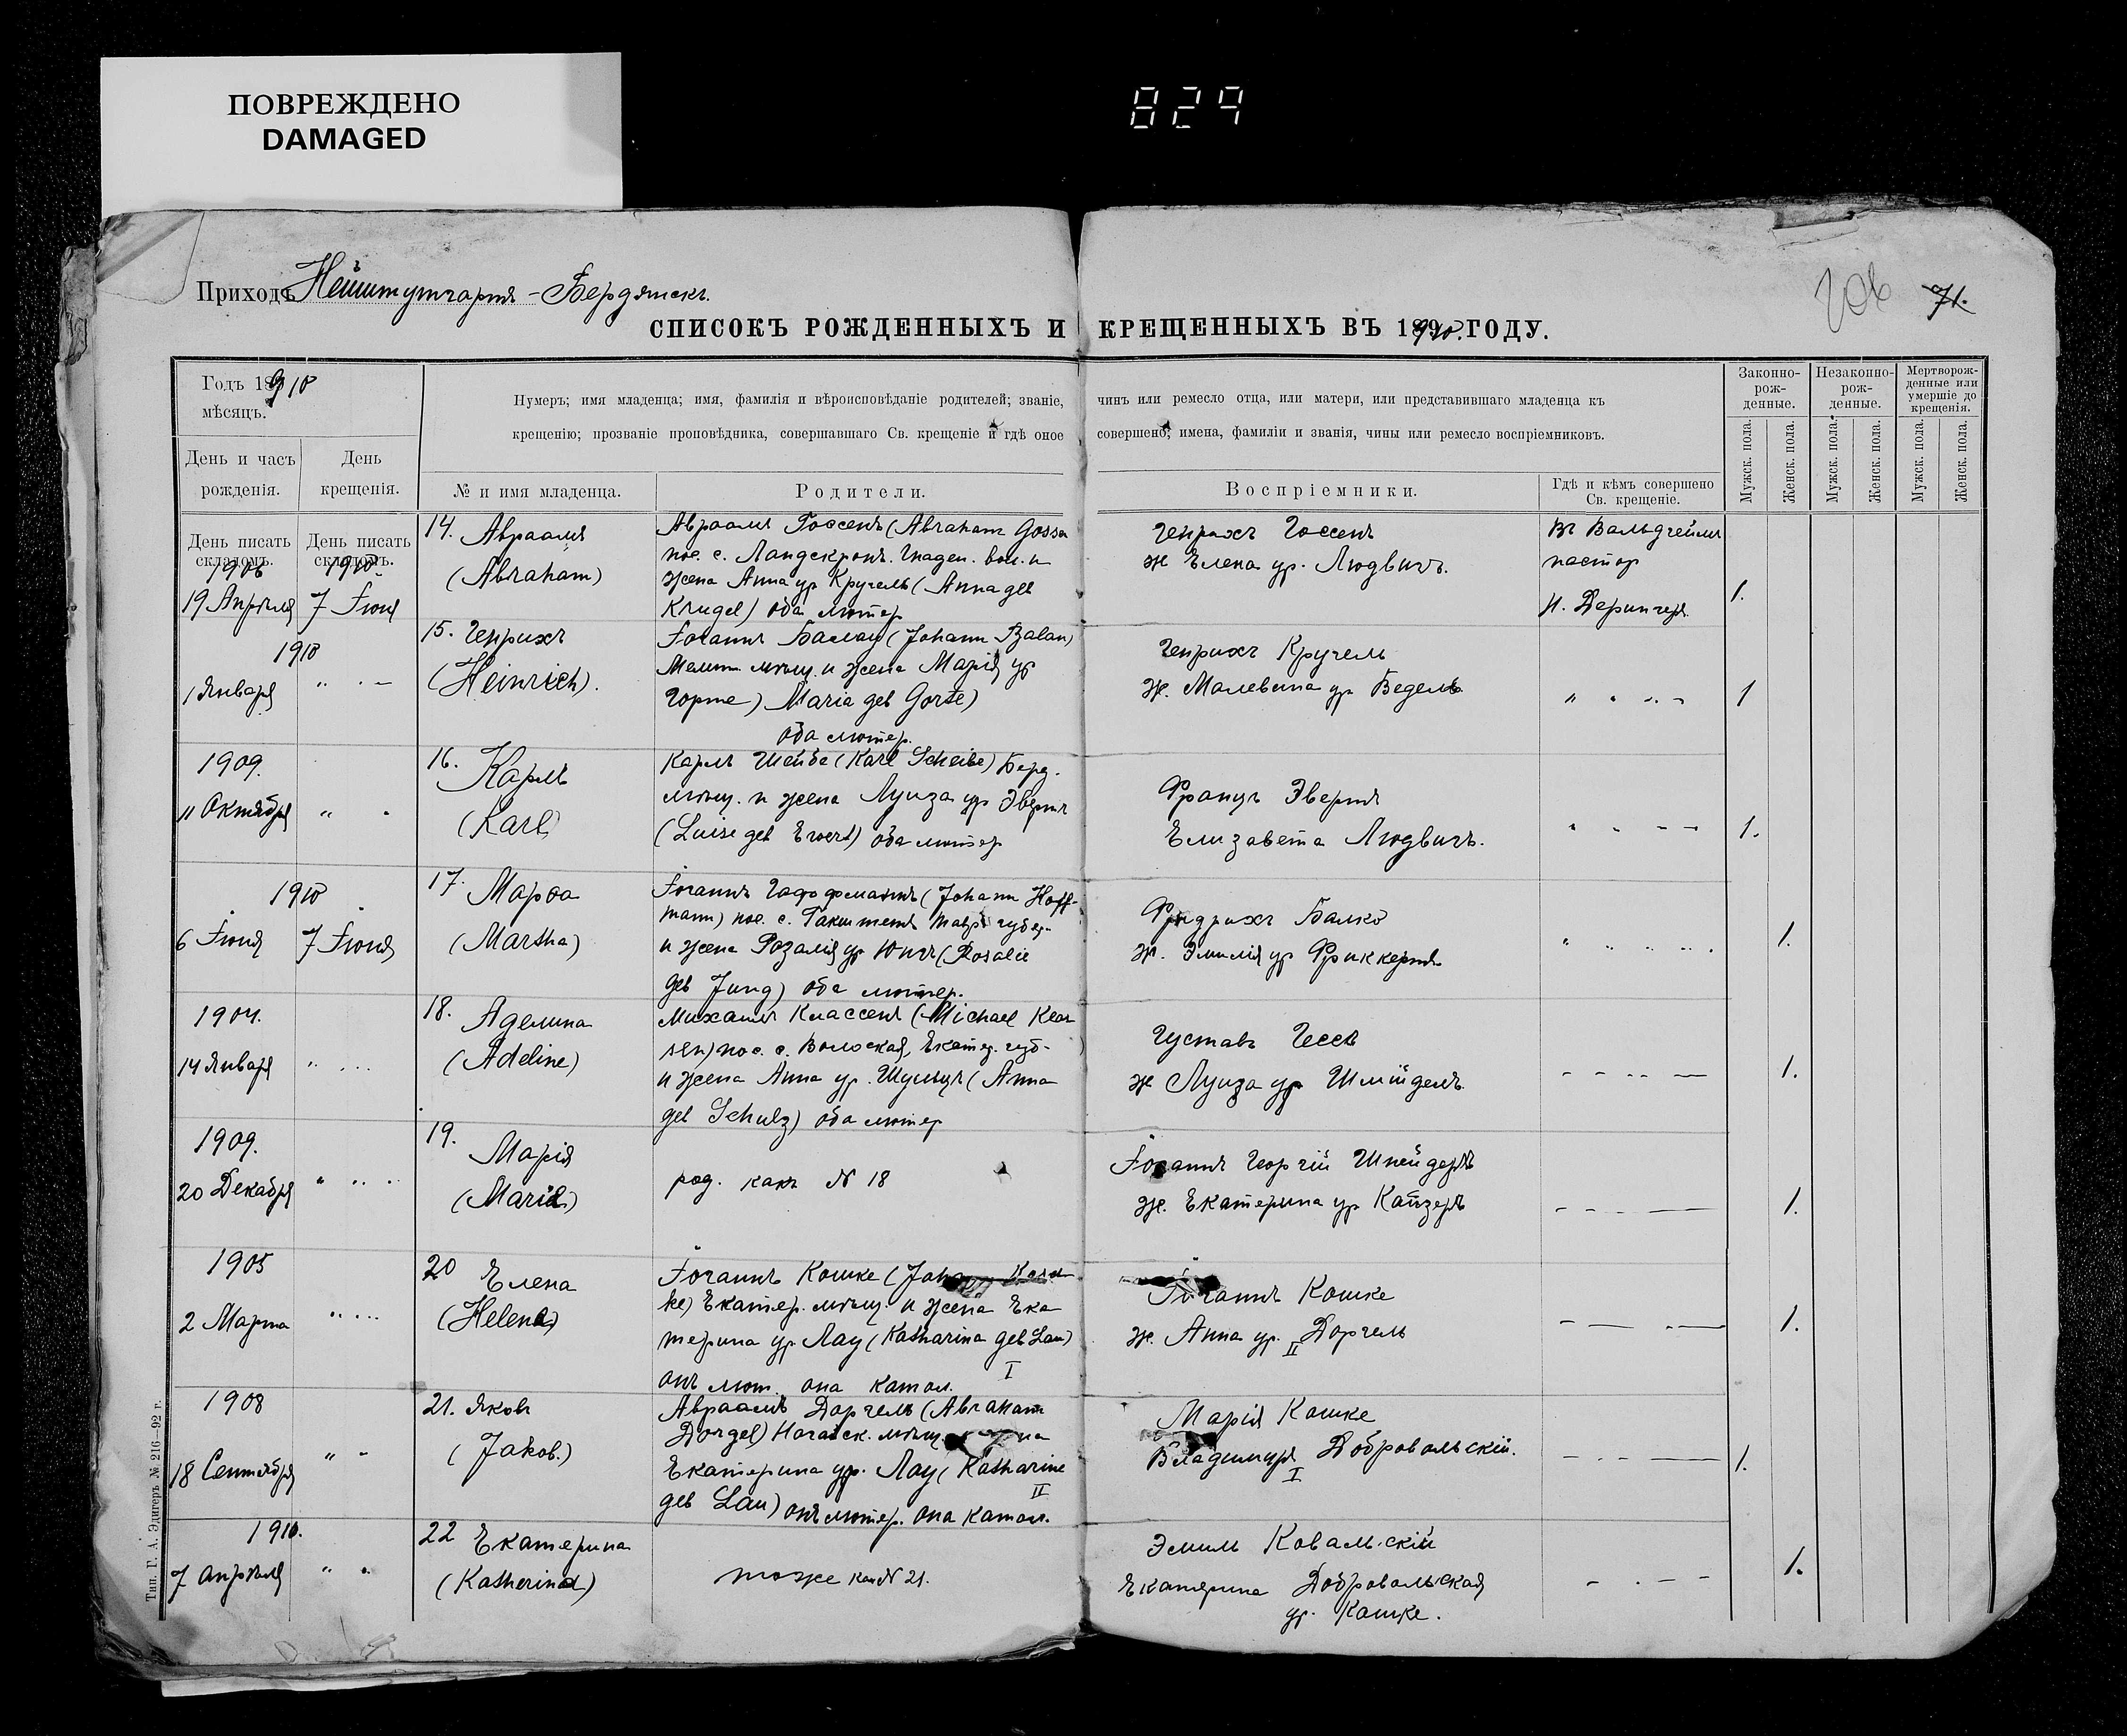 ПОВРЕЖДЕНО
DAMAGED
829
Приходъ Нейштутгартъ-Бердянскъ.
71.
СПИСОКЪ РОЖДЕННЫХЪ И КРЕЩЕННЫХЪ ВЪ 1910. ГОДУ.
Годъ 1910
мѣсяцъ.
Нумеръ; имя младенца; имя, фамилія и вѣроисповѣданіе родителей; званіе, чинъ или ремесло отца, или матери, или представившаго младенца къ
крещенію; прозваніе проповѣдника, совершавшаго Св. крещеніе и гдѣ оное совершено; имена, фамиліи и званія, чины или ремесло воспріемниковъ.
Законно-
рож-
денные.
Незаконно-
рож-
денные.
Мертворож-
денные или
умершіе до
крещенія.
Мужск. пола.
Женск. пола.
Мужск. пола.
Женск. пола.
Мужск. пола.
Женск. пола.
День и часъ
рожденія.
День
крещенія.
№ и имя младенца.
Родители.
Воспріемники.
Гдѣ и кѣмъ совершено
Св. крещеніе.
День писать
складомъ.
День писать
складомъ.
1906
19 Апрѣля
1910
7 Іюня
14. Авраамъ
(Abraham)
Авраамъ Госсенъ (Abraham Gossen
пос. с. Ландскронъ. Гнаден. вол. и
жена Анна ур Кругель (Anna geb
Krugel) оба лютер
Генрихъ Госсенъ
ж Елена ур. Людвигъ.
Въ Вальдгеймъ
пастор
И. Дерингеръ
1.
1910
1 Января
" . —
15. Генрихъ
(Heinrich).
Іоганнъ Балау (Johann Balau)
Мелит мѣщ. и жена Марія ур
Горте) Maria geb Gorte)
оба лютер.
Генрихъ Кругель
ж. Малевина ур Ведель
" . .. —
1
1909.
11 Октября
" .
16.
Карлъ
(Karl)
Карлъ Шейбе (Karl Scheibe) Берд.
мѣщ. и жена Луиза ур Эвертъ
(Luise geb Ewert) оба лютер
Францъ Эвертъ
Елизавета Людвигъ.
" . — —
1.
1910
6 Іюня
7 Іюня
17. Марѳа
(Martha)
Іоганнъ Гоффманнъ (Johann Hoff-
mann) пос. с. Гакштетъ Тавр губер-
и жена Розалія ур Юнгъ (Rosalie
geb Jung) оба лютер.
Фридрихъ Балко
ж. Эмилія ур Фриккертъ
" .. .. ... .
1.
1904.
14 Января
" ...
18. Аделина
(Adeline)
Михаилъ Классенъ (Michael Klas
sen) пос. с. Волоская, Екатер. губ-
и жена Анна ур. Шульцъ (Anna
geb Schulz) оба лютер
Густавъ Гессъ
ж Луиза ур Шмидель
— — .. —
1.
1909.
20 Декабря
" .. ..
19.
Марія
(Maria)
род. какъ № 18
Іоганнъ Георгій Шнейдеръ
ж. Екатерина ур Кайзеръ
— — . —
1.
1905
2 Марта
" ...
20 Елена
(Helena)
Іоганнъ Кошке (Johann Kosch
ke) Екатер. мѣщ. и жена Ека
терина ур Лау (Katharina geb Lau)
I
онъ лют. она катол.
Іоганнъ Кошке
ж. Анна ур. Доргель
II
— — . —
1.
1908
18 Сентября
" —
21. Яковъ
(Jakob.)
Авраамъ Доргель (Abraham
Dorgel) Ногайск. мѣщ.
Екатерина ур. Лау (Katharine
II
geb Lau) онъ лютер. она катол.
Марія Кошке
Владиміръ Добровольскій.
I
— . — —
1.
1910.
7 Апрѣля
" .
22 Екатерина
(Katherina)
тоже как № 21.
Эмиль Ковальскій
Екатерина Добровольская
ур. Кошке.
— . — —
1.
Тип. Г. А. Эдигеръ № 216—92 г.